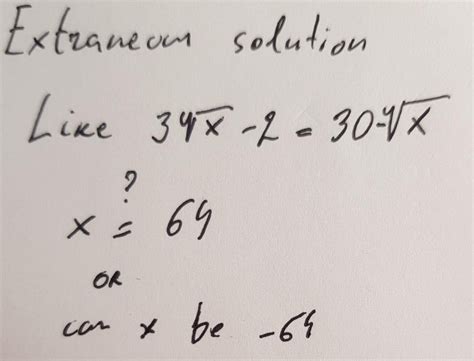 Extraneous solution
Like 3∜x - 2 = 30 - ∜x
x ?= 64
OR
can x be -64